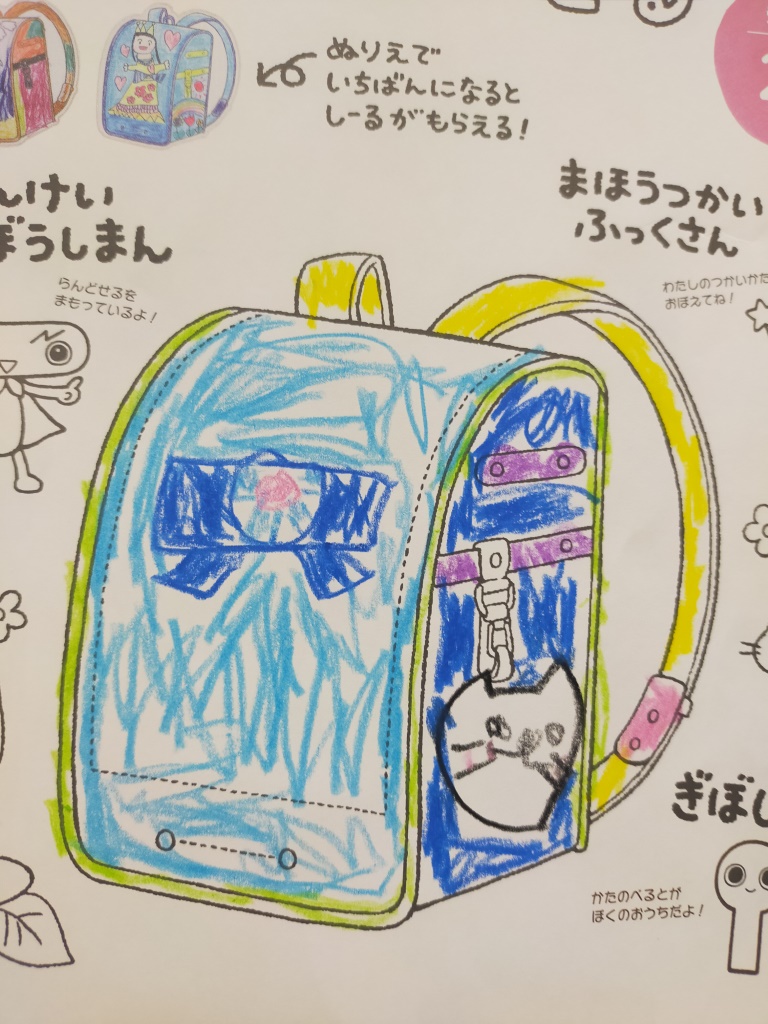 ぬりえで
いちばんになると
しーるがもらえる!
んけい
ぼうしまん
らんどせるを
まもっているよ!
まほうつかい
ふっくさん
わたしのつかいかた
おぼえてね!
ぎぼし
かたのべるとが
ぼくのおうちだよ!